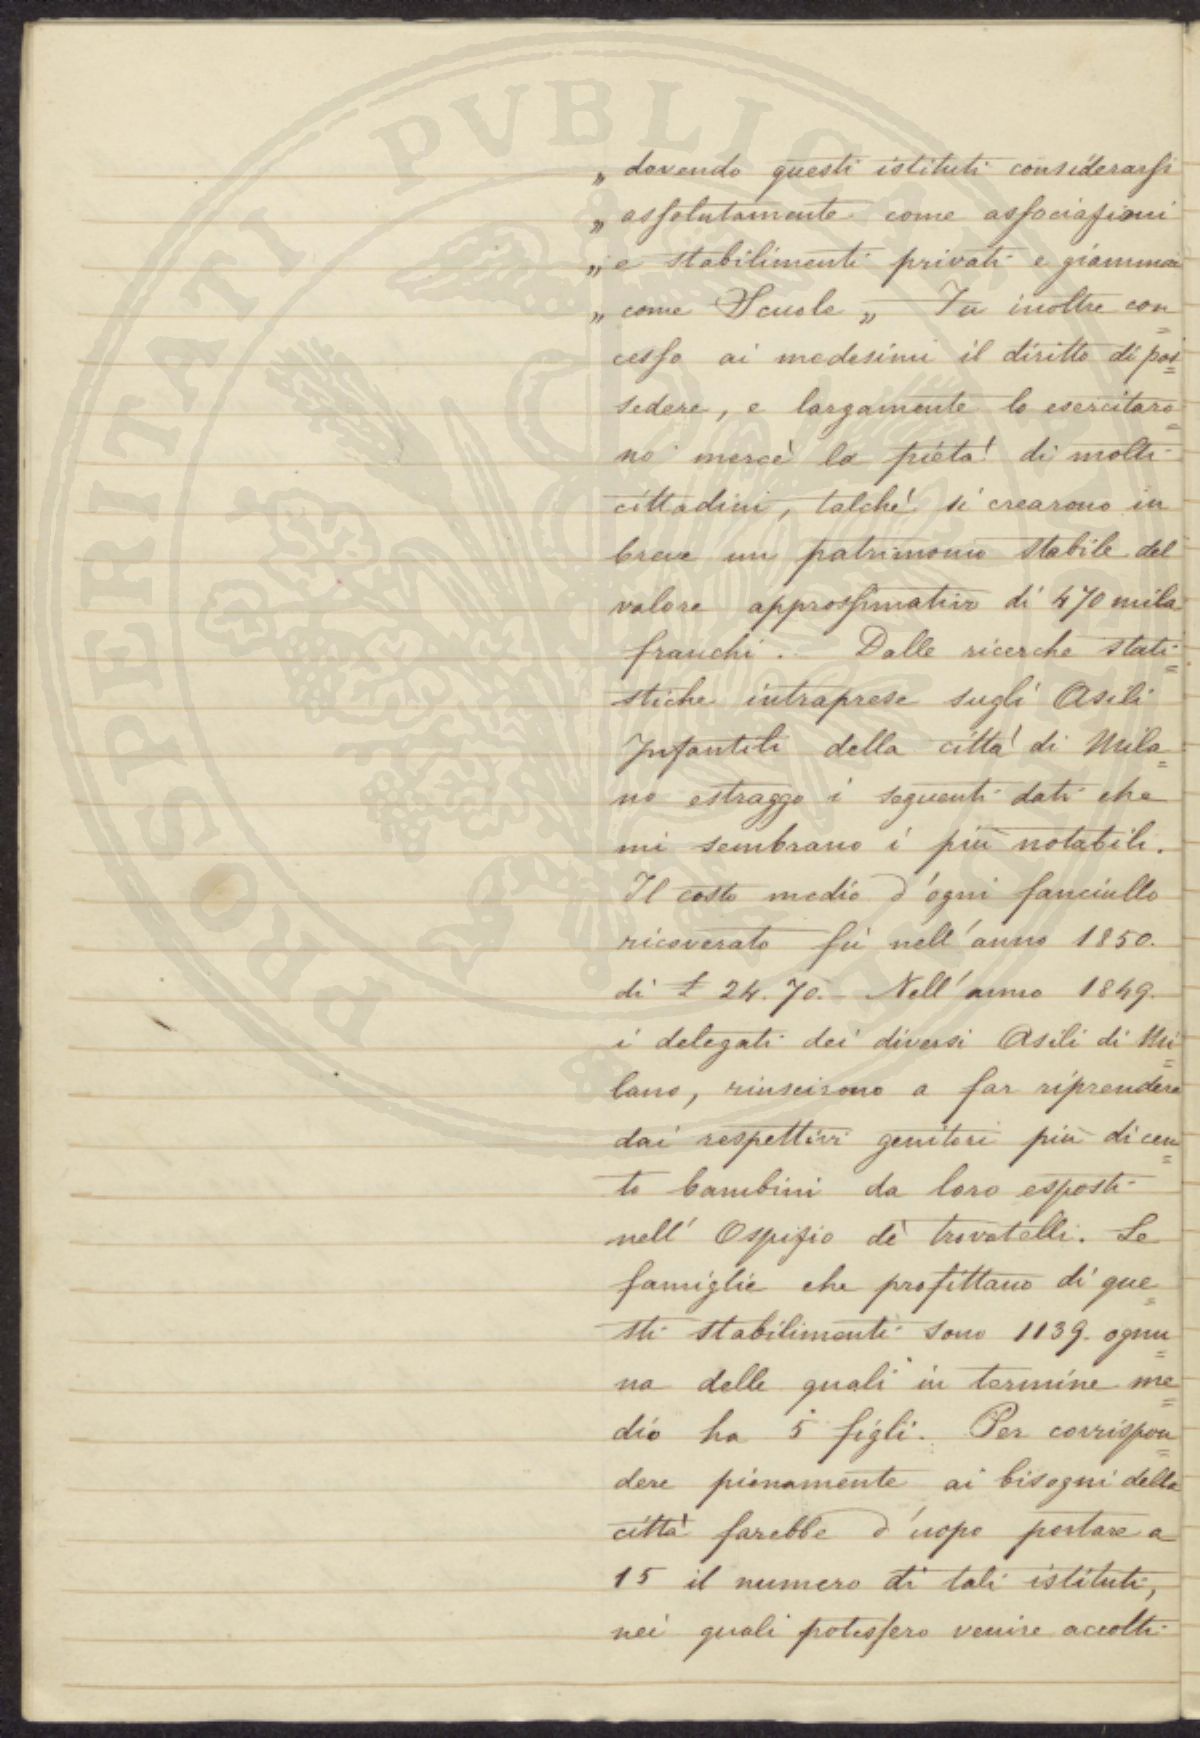 „ dovendo questi istituti considerarsi
„ assolutamente come associazioni
„ e stabilimenti privati e giammai
„ come Scuole „ Fu inoltre con=
cesso ai medesimi il diritto di pos=
sedere, e largamente lo esercitaro=
no mercè la pietà di molti
cittadini, talchè si crearono in
breve un patrimonio stabile del
valore approssimativo di 470 mila
franchi. Dalle ricerche stati=
stiche intraprese sugli Asili
Infantili della città di Mila=
no estraggo i seguenti dati che
mi sembrano i più notabili.
Il costo medio d'ogni fanciullo
ricoverato fù nell'anno 1850.
di £ 24.70. Nell'anno 1849.
i delegati dei diversi Asili di Mi=
lano, riuscirono a far riprendere
dai respettivi genitori più di cen=
to bambini da loro esposti
nell' Ospizio dè trovatelli. Le
famiglie che profittano di que=
sti stabilimenti sono 1139. ognu=
na delle quali in termine me=
dio ha 5 figli. Per corrispon=
dere pienamente ai bisogni della
città farebbe d'uopo portare a
15 il numero di tali istituti,
nei quali potessero venire accolti
PROSPERITATI PVBLICAE